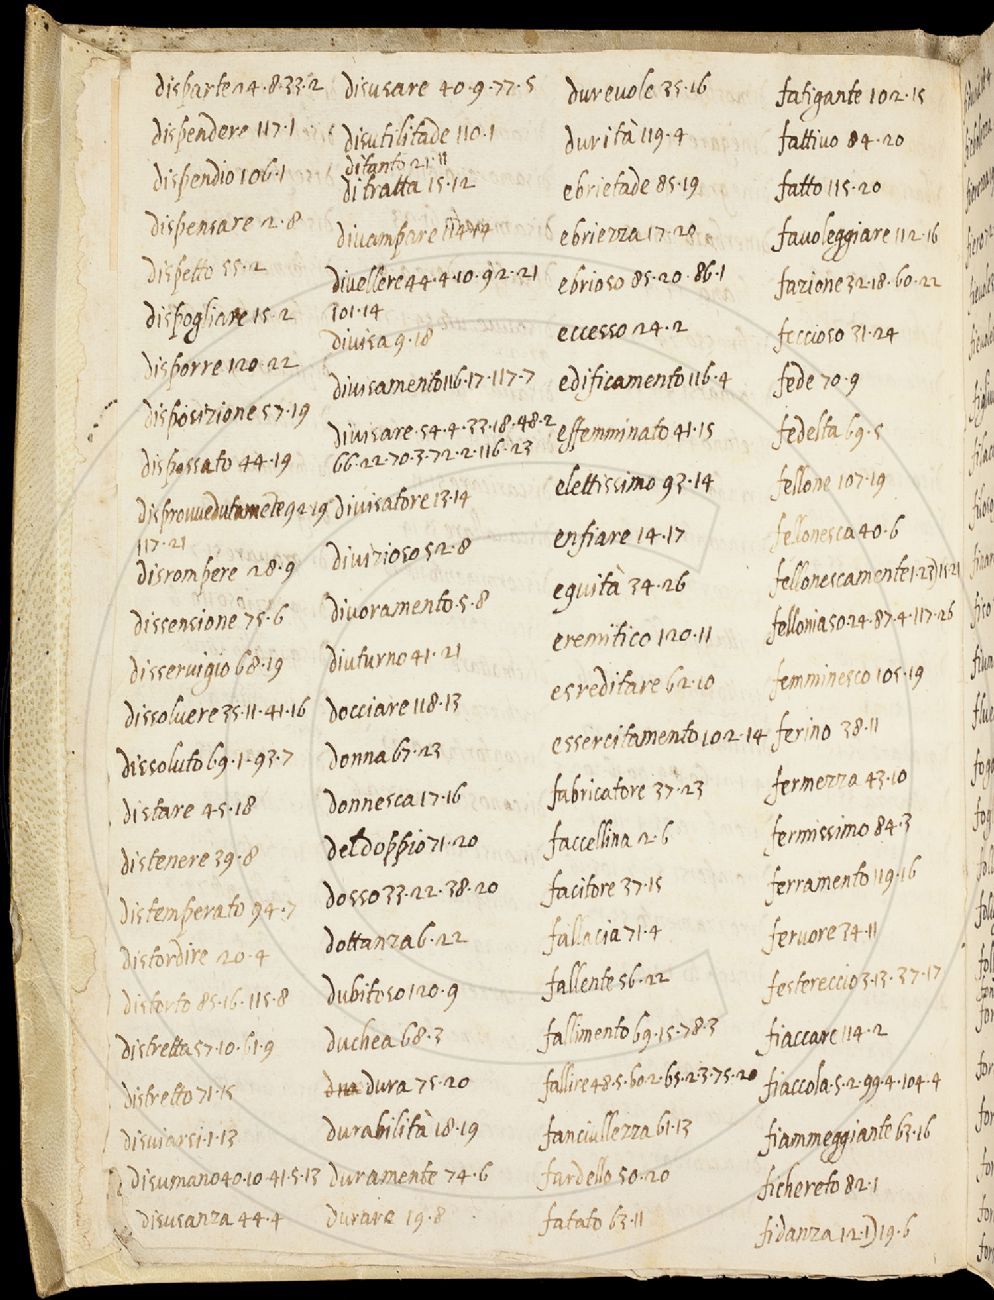 disparte 24·8·33·2
dispendere 117·1
dispendio 106·1
dispensare 2·8
dispetto 55·2
dispogliare 15·2
disporre 120·22
disposizione 57·19
dispossato 44·19
disprouuedutamēte 92·19
117·21
disrompere 28·9
dissensione 75·6
disseruigio 68·19
dissoluere 35·11·41·16
dissoluto 69·1·93·7
distare 45·18
distenere 39·8
distemperato 94·7
distordire 20·4
distorto 85·16·115·8
distretta 57·10·61·9
distretto 71·15
disuiarsi·1·13
disumano 40·10·41·5·13
disusanza 44·4
disusare 40·9·77·5
disutilitade 110·1
ditanto 21·11
ditratta 15·12
diuampare 114·14
diuellere 44·4·10·92·21
101·14
diuisa 9·18
diuisamento 116·17·117·7
diuisare·54·4·33·18·48·2
66·22·70·3·72·2·116·23
diuisatore 13·14
diuizioso 52·8
diuoramento·5·8
diuturno 41·21
docciare 118·13
donna 67·23
donnesca 17·16
del doppio 71·20
dosso 33·22·38·20
dottanza 6·22
dubitoso 120·9
duchea 68·3
dura 75·20
durabilità 18·19
duramente 74·6
durare 19·8
dureuole 35·16
durità 119·4
ebrietade 85·19
ebriezza 17·20
ebrioso 85·20·86·1
eccesso 24·2
edificamento 116·4
effemminato 41·15
elettissimo 93·14
enfiare 14·17
equità 34·26
eremitico 120·11
esreditare 62·10
essercitamento 102·14
fabricatore 37·23
faccellina 2·6
facitore 37·15
fallacia 71·4
fallente 56·22
fallimento 69·15·78·3
fallire 48·5·60·2·65·23·75·20
fanciullezza 61·13
fardello 50·20
fatato 63·11
fatigante 102·15
fattiuo 84·20
fatto 115·20
fauoleggiare 112·16
fazione 32·18·60·22
feccioso 31·24
fede 70·9
fedelta 69·5
fellone 107·19
fellonesca 40·6
fellonescamente 1·23) 15·21
fellonia 50·24·87·4·117·26
femminesco 105·19
ferino 38·11
fermezza 43·10
fermissimo 84·3
ferramento 119·16
feruore 34·11
festereccio 3·13·37·17
fiaccare 114·2
fiaccola·5·2·99·4·104·4
fiammeggiante 63·16
fichereto 82·1
fidanza 12·1) 19·6